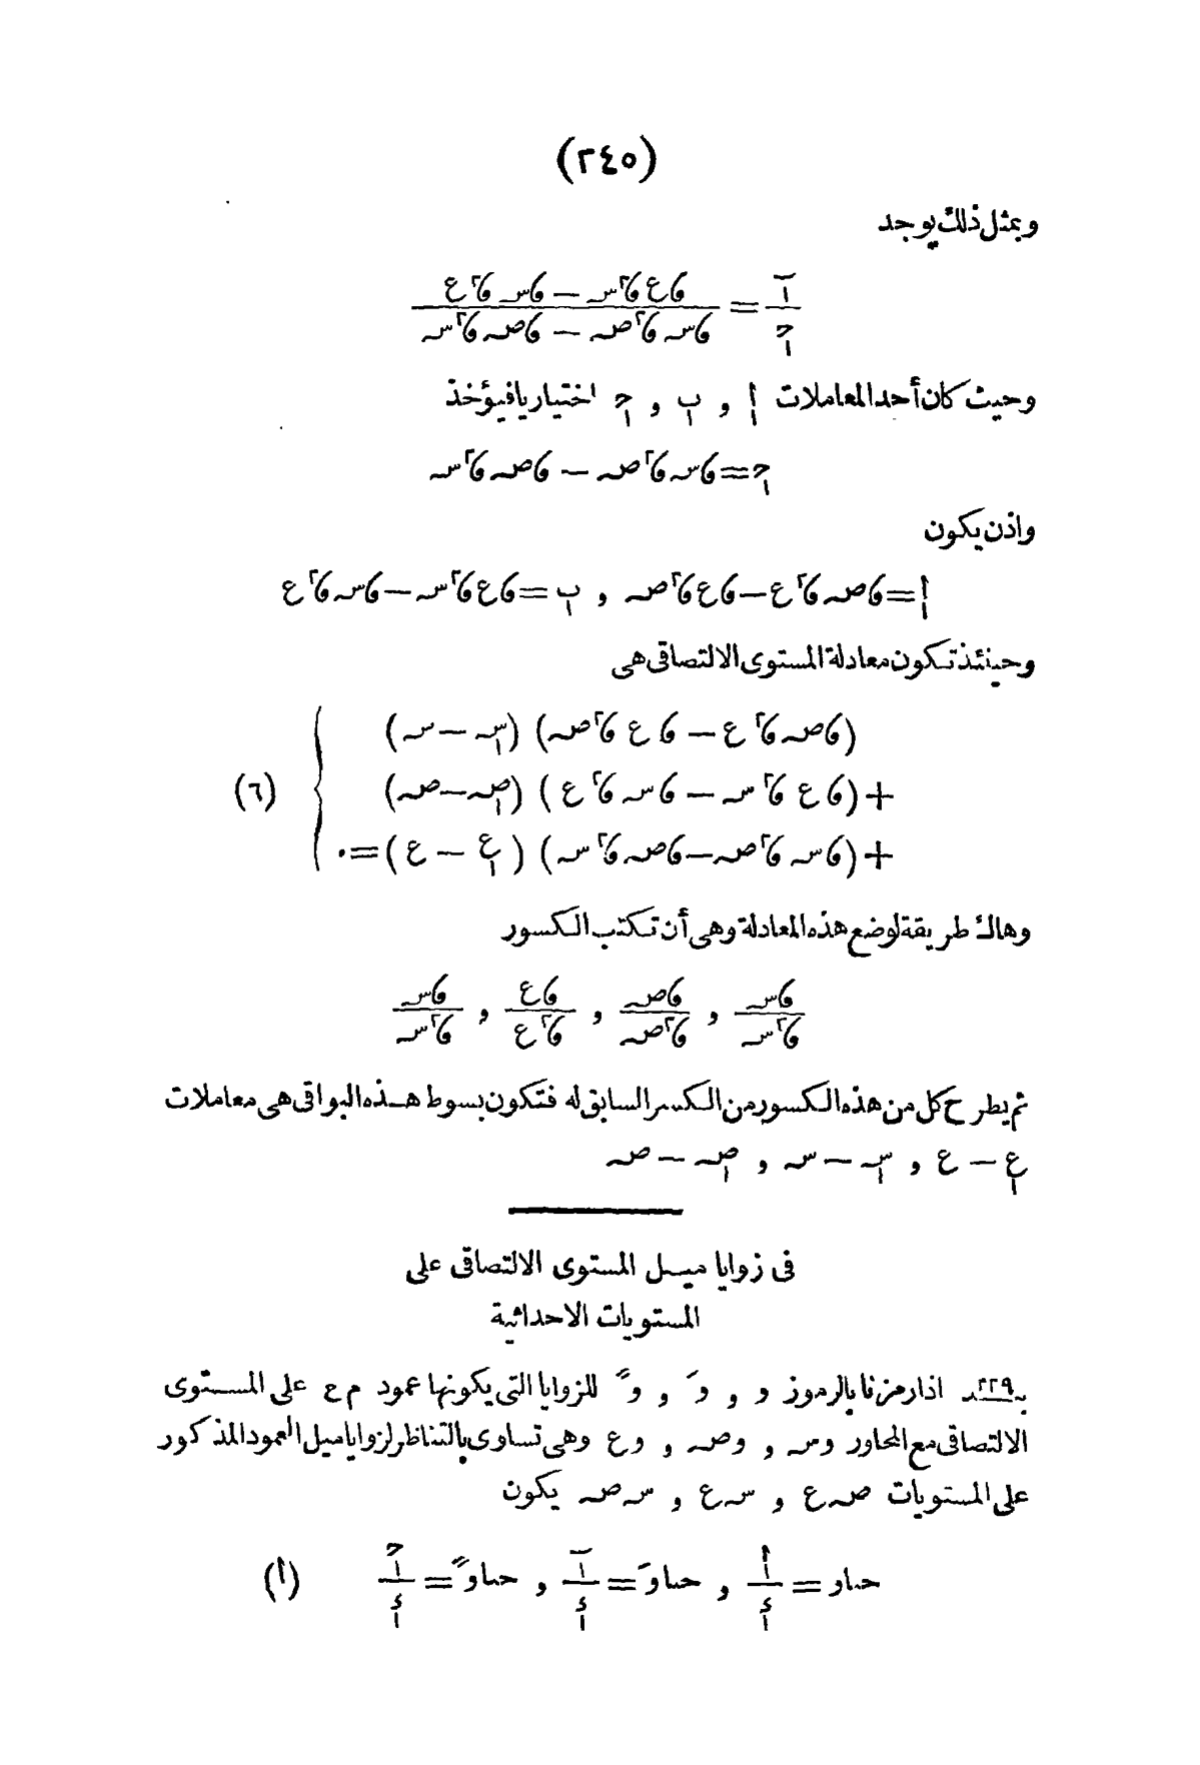 (٢٤٥)
وبمثل ذلك يوجد
ب١/ج١ = (ﻗع ﻗ٢س − ﻗس ﻗ٢ع)/(ﻗس ﻗ٢صـ − ﻗصـ ﻗ٢س)
وحيث كان أحد المعاملات أ١ و ب١ و ج١ اختياريا فيؤخذ
ج١ = ﻗس ﻗ٢صـ − ﻗصـ ﻗ٢س
واذن يكون
أ١ = ﻗصـ ﻗ٢ع − ﻗع ﻗ٢صـ و ب١ = ﻗع ﻗ٢س − ﻗس ﻗ٢ع
وحينئذ تكون معادلة المستوى الالتصاقى هى
(ﻗصـ ﻗ٢ع − ﻗع ﻗ٢صـ) (س١ − س)
+ (ﻗع ﻗ٢س − ﻗس ﻗ٢ع) (صـ١ − صـ) (٦)
+ (ﻗس ﻗ٢صـ − ﻗصـ ﻗ٢س) (ع١ − ع) = ٠
وهاك طريقة لوضع هذه المعادلة وهى أن تكتب الكسور
ﻗس/ﻗ٢س و ﻗصـ/ﻗ٢صـ و ﻗع/ﻗ٢ع و ﻗس/ﻗ٢س
ثم يطرح كل من هذه الكسور من الكسر السابق له فتكون بسوط هذه البواقى هى معاملات
ع١ − ع و س١ − س و صـ١ − صـ
فى زوايا ميل المستوى الالتصاقى على
المستويات الاحداثية
بند ٢٢٩ اذا رمزنا بالرموز و و وَ و وً للزوايا التى يكونها عمود م ع على المستوى
الالتصاقى مع المحاور وس و وصـ و وع وهى تساوى بالتناظر لزوايا ميل العمود المذكور
على المستويات صـ ع و س ع و س صـ يكون
حتاو = أ١/ء١ و حتاوَ = ب١/ء١ و حتاوً = ج١/ء١ (أ)